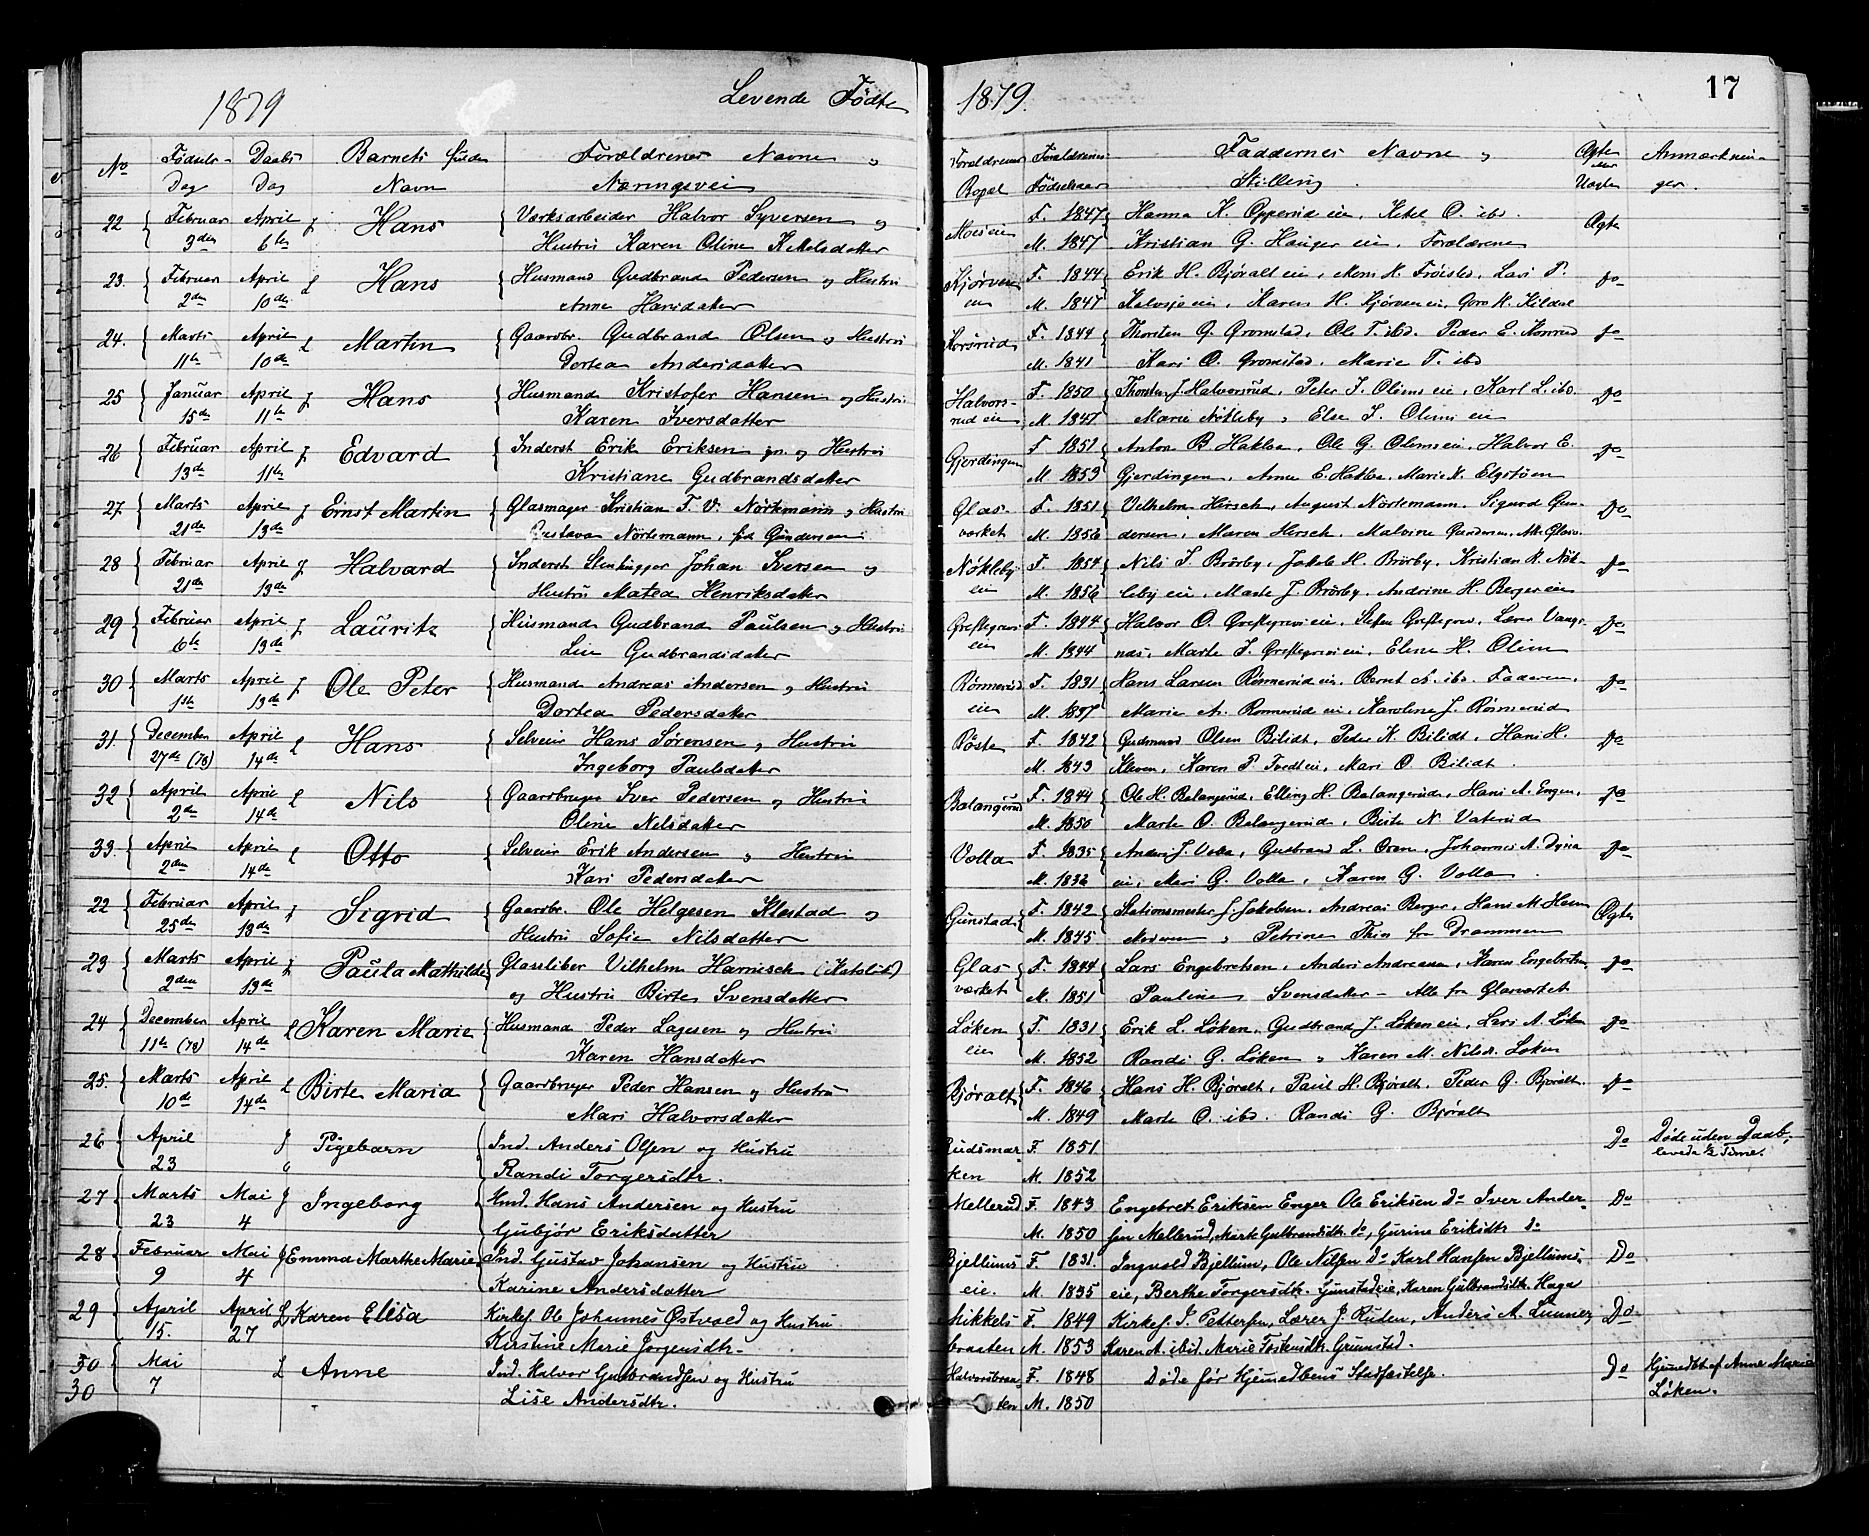 1879 Levende Fødte 1879. 17
No Fødsels- Daabs Barnets fulde Forældrenes Navne og Forældrenes Forældrenes Faddernes Navne og Ægte Anmærknin-
Dag Dag Navn Næringsvei Bopæl Fødselsaar Stilling Uægte ger.
22 Februar April Hans Værksarbeider Halvor Syversen og Moeseie F. 1847 Hanna K. Opperud eie, Ketil O. ibd. Ægte
3den 6te Hustru Karen Oline Ketelsdatter M. 1847 Kristian G. Hauger eie, Forældrene
23. Februar April Hans Husmand Gudbrand Pedersen og Hustru Kjørven F. 1844 Erik H. Bjøralt eie, K. Frøisli, Lars P. do
2den 10de Anne Hansdatter eie M. 1847 Kalvsjø eie, Karen H. Kjørven eie, Goro H.
24. Marts April Martin Gaardbr. Gudbrand Olsen og Hustru F. 1844 Thorsten G. Gromstad, Ole T. ibd. Peder E. do
11te 10de Dortea Andersdatter M. 1841 Kari O. Gromstad, Marie T. ibd
25 Januar April Hans Husmand Kristofer Hansen og Hustru Halvors- F. 1850 Thorsten J. Halvorsrud, Peter I. Olims eie, Karl L. ibd. do
15de 11te Karen Iversdatter rud eie M. 1847 Marie Nøkleby, Else I. Olims eie
26 Februar April Edvard Inderst Erik Eriksen jn. og Hustru Gjerdingen F 1851 Anton B Hakloa, Ole G. Olimseie, Halvor E. do
13de 11te Kristiane Gudbrandsdatter M 1853 Gjerdingen, Anne E. Hakloa, Marie K. Elgstøen
27. Marts April Ernst Martin Glasmager Kristian F. V. Nørtemann og Hustru Glas- F. 1851 Velhelm Hirsch, August Nørtemann, Sigurd Gun- do
21de 13de Gustava Nørtemann, fød Gundersen værket M. 1856 dersen, Maren Hersch, Malvine Gundersen, Alle Glasv.
28 Februar April Halvard Inderst Stenhugger Johan Iversen og Nøkleby F. 1854 Nils I. Brørby, Jakob H. Brørby, Kristian K. Nøk- do
21de 13de Hustru Matea Henriksdatter eie M. 1856 leby eie, Marte J. Brørby, Andrine H. Berger eie
29 Februar April Lauritz Husmand Gudbrand Paulsen og Hustru Greftegrevs F. 1844 Halvor O. Greftegrevs eie, Steffen Greftegrev, Lærer Vangs- do
6te 13de Lise Gudbrandsdatter eie M. 1844 næs, Marte I. Greftegrevs eie, Eline H. Olim
30 Marts April Ole Peter Husmand Andreas Andersen og Hustru Rønnerud F. 1831 Hans Larsen Rønnerud eie, Bernt A. ibd. Faderen, do
1ste 13de Dortea Pedersdatter eie M. 1837 Marie A. Rønnerud eie, Karoline J. Rønnerud
31. December April Hans Selveier Hans Sørensen og Hustru Røste F. 1842 Gudmund Olsen Bilidt, Peder K. Bilidt, Hans H. do
27de (78) 14de Ingeborg Paulsdatter M. 1843 Kleven, Karen P. Tvedt eie, Mari O. Bilidt.
32 April April Nils Gaardbruger Iver Pedersen og Hustru Balangerud F. 1844 Ole H. Balangerud, Elling H. Balangerud, Hans A. Engen, do
2den 14de Oline Nilsdatter M. 1850 Marte O. Balangerud, Birte N. Vaterud
33. April April Otto Selveier Erik Andersen og Hustru Volla F. 1835 Anders J. Volla, Gudbrand L. Oren, Johannes A. Dynna do
2den 14de Kari Pedersdatter M. 1836 eie, Mari G. Volla, Karen G. Volla.
22 Februar April Sigrid Gaardbr. Ole Helgesen Klæstad og Gunstad F. 1842 Stationsmester J. Jakobsen, Andreas Berger, Hans M. Ægte
25de 13de Hustru Sofie Nilsdatter M. 1845 Moderen og Petrine Thos fra Drammen
23 Marts April Paula Mathilde Glassliber Vilhelm Harnisch (Katolik) Glas F. 1844 Lars Engebretsen, Anders Andreassen, Karen Engebretsen, do
2den 13de og Hustru Birte Svensdatter værket M. 1851 Pauline Svensdatter – Alle fra Glasværket
24 December April Karen Marie Husmand Peder Lagesen og Hustru Løken F. 1831 Erik L. Løken, Gudbrand J. Løkeneie, Lars A. Løken do
11te (78) 14de Karen Hansdatter eie M. 1832 Randi G. Løken og Karen M. Nilsdr. Løken
25. Marts April Birte Maria Gaardbruger Peder Hansen og Hustru Bjøralt F. 1846 Hans H. Bjøralt, Paul H. Bjøralt, Peder G. Bjøralt. do
10de 14de Mari Halvorsdatter M. 1849 Marte O. ibd. Randi G. Bjøralt
26 April Pigebarn Ind. Anders Olsen og Hustru Rudsmar- F. 1851 Do Døde uden Daab,
23 Randi Torgersdtr. ken M. 1852 levede ½ Time.
27 Marts Mai Ingeborg Hmd. Hans Andersen og Hustru Mellerud F. 1843 Engebret Eriksen Enger Ole Eriksen do Iver Ander- Do
23 4 Gubjør Eriksdatter M. 1850 sen Mellerud, Marte Gulbrandsdtr do, Gurine Eriksdtr do
28 Februar Mai Emma Marthe Marie Ind. Gustav Johansen og Hustru Bjellums F. 1831. Ingvold Bjellum, Ole Nilsen do Karl Hansen Bjellums- Do
9 4 Karine Andersdatter eie. M. 1835 eie, Berthe Torgersdtr. Gunstadeie, Karen Gulbrandsdtr. Haga
29 April April Karen Elisa Kirkes. Ole Johannes Østvold og Hustru Mikkels F. 1849 Kirkes. P. Pettersen, Lærer J. Ruden, Anders A. Lunner, Do
15. 27 Kirstine Marie Jørgensdtr. braaten M. 1853 Karen A. ibid. Marie Grunstad.
30 Mai Anne Ind. Halvor Gulbrandsen og Hustru Halvorsbraa- F. 1848 Døde før Hjemedøbens Stadfæstelse. Do Hjemedøbt af Anne Marie
30 7 Lise Andersdtr. ten M. 1850 Løken.